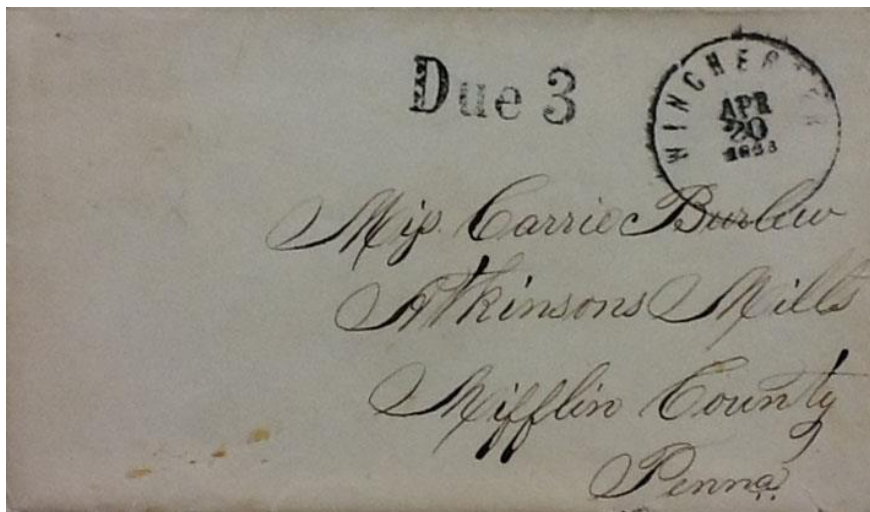 Due 3
WINCHESTER
APR
20
Miss. Carrie Burlew
Atkinsons Mills
Mifflin County
Penna.